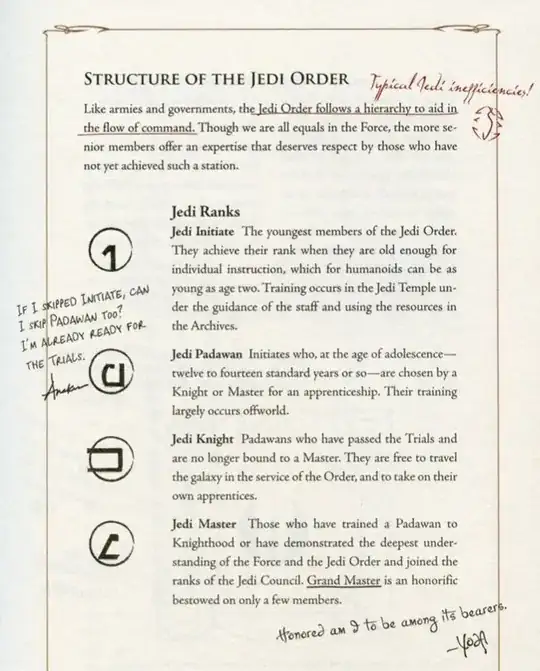 STRUCTURE OF THE JEDI ORDER
Typical Jedi inefficiencies!
Like armies and governments, the Jedi Order follows a hierarchy to aid in
the flow of command. Though we are all equals in the Force, the more se-
nior members offer an expertise that deserves respect by those who have
not yet achieved such a station.
Jedi Ranks
Jedi Initiate The youngest members of the Jedi Order.
They achieve their rank when they are old enough for
individual instruction, which for humanoids can be as
young as age two. Training occurs in the Jedi Temple un-
der the guidance of the staff and using the resources in
the Archives.
IF I SKIPPED INITIATE, CAN
I SKIP PADAWAN TOO?
I'M ALREADY READY FOR
THE TRIALS.
Anakin
Jedi Padawan Initiates who, at the age of adolescence—
twelve to fourteen standard years or so—are chosen by a
Knight or Master for an apprenticeship. Their training
largely occurs offworld.
Jedi Knight Padawans who have passed the Trials and
are no longer bound to a Master. They are free to travel
the galaxy in the service of the Order, and to take on their
own apprentices.
Jedi Master Those who have trained a Padawan to
Knighthood or have demonstrated the deepest under-
standing of the Force and the Jedi Order and joined the
ranks of the Jedi Council. Grand Master is an honorific
bestowed on only a few members.
Honored am I to be among its bearers.
—Yoda